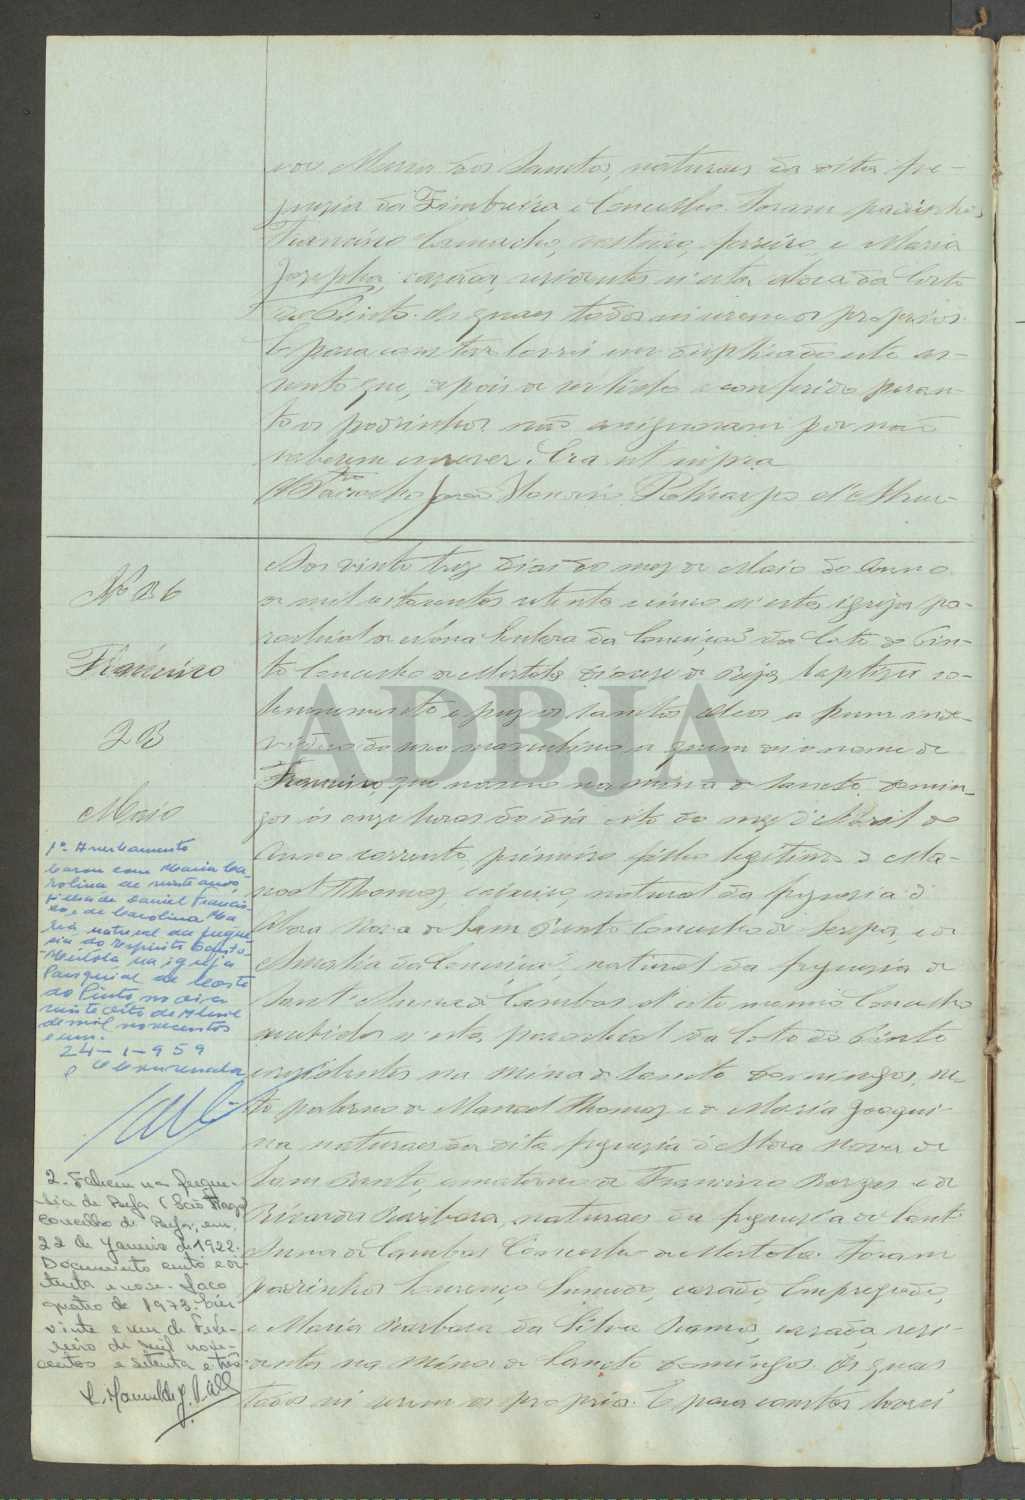 Maria dos Sanctos, naturaes da dita fre-
guesia da Trindade e Concelho. Foram padrinhos
Francisco Camacho, solteiro, e Maria
Josepha, casada, residentes n'esta aldea da Corte
do Pinto. Os quaes todos sei serem os proprios.
E para constar lavrei em duplicado este as-
sento que, depois de ser lido e conferido peran-
te os padrinhos não assignaram por não
saberem escrever. Era ut supra
O Parocho João
Nº 26
Francisco
23
Maio
Aos vinte tres dias do mez de Maio do Anno
de mil oitocentos setenta e cinco n'esta igreja pa-
rochial de Nossa Senhora da Conceição da Corte do Pin-
to Concelho de Mertola diocese de Beja, baptizei so-
lemnemente e puz os sanctos oleos a hum indi-
viduo do sexo masculino a quem dei o nome de
Francisco, que nasceu na mina de Sancto Domin-
gos ás onze horas do dia oito do mez d'Abril do
Anno corrente, primeiro filho legitimo de Ma-
noel Thomaz, natural da freguesia d'
Aldea Nova de Sam Bento Concelho de Serpa, e de
Amalia da Conceição natural da freguesia de
Sant'Anna de Cambas, d'este mesmo Concelho
recebidos n'esta parochial da Corte do Pinto
residentes na mina de Sancto Domingos, ne-
to paterno de Manoel Thomaz e de Maria Joaqui-
na naturaes da dita freguesia d'Aldea Nova de
Sam Bento, e materno de Francisco Borges e de
Barbara, naturaes da freguesia de Sant'
Anna de Cambas Concelho de Mertola. Foram
padrinhos Lourenço, casado, Empregado,
e Maria Barbara da Silva Ramos, casada resi-
dentes na mina de Sancto Domingos. Os quaes
todos sei serem os proprios. E para constar lavrei
1º Averbamento
Casou com Maria Ca-
rolina de vinte anos,
filha de Daniel Francis-
co, e de Carolina Ma
ria, natural da fregue
sia do Espirito Santo
-Mértola na igreja
Paroquial de Corte
do Pinto no dia
vinte oito de Abril
de mil novecentos
e um.
24-1-959
O Conservador
2. Faleceu na fregue-
sia de Beja (São Tiago)
Concelho de Beja, em,
22 de Janeiro de 1922.
Documento cento e oi-
tenta e nove. Maço
quatro de 1973.
vinte e um de Feve-
reiro de mil nove-
centos e setenta e três
ADBJA